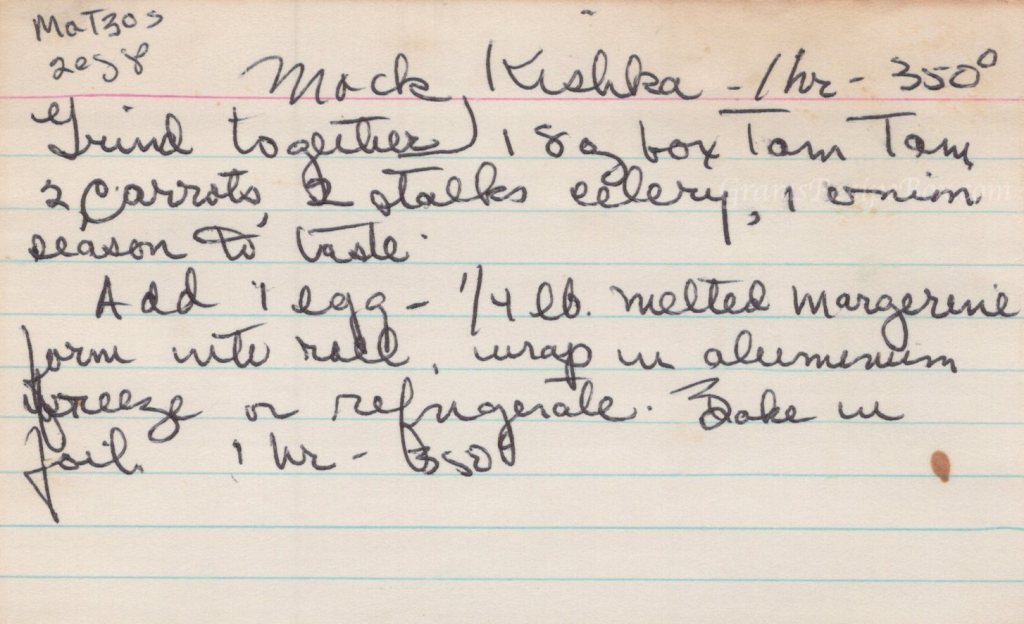 Matzos
2 egg
Mock Kishka - 1 hr - 350°
Grind together, 1 8 oz box Tam Tam
2 carrots, 2 stalks celery, 1 onion
season to taste.
Add 1 egg - 1/4 lb. melted margerine
form into roll, wrap in aluminum
freeze or refrigerate. Bake in
foil. 1 hr - 350°